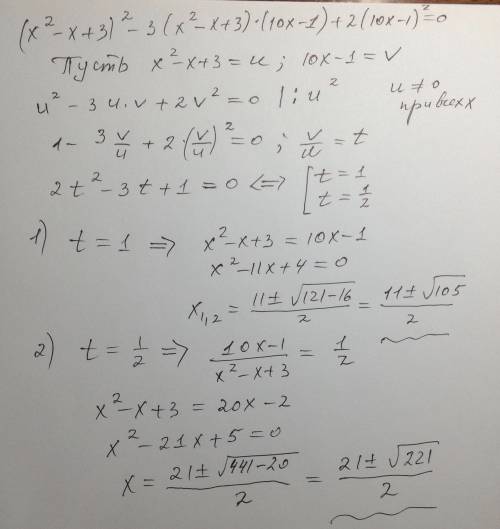 (x² - x + 3)² - 3(x² - x + 3)·(10x - 1) + 2(10x - 1)² = 0
Пусть x² - x + 3 = u; 10x - 1 = v
u² - 3u·v + 2v² = 0 |: u² u ≠ 0 при всех x
1 - 3 v/u + 2·(v/u)² = 0; v/u = t
2t² - 3t + 1 = 0 <=> [t = 1 t = 1/2
1) t = 1 => x² - x + 3 = 10x - 1
x² - 11x + 4 = 0
x₁,₂ = (11 ± √(121 - 16))/2 = (11 ± √105)/2
2) t = 1/2 => (10x - 1)/(x² - x + 3) = 1/2
x² - x + 3 = 20x - 2
x² - 21x + 5 = 0
x = (21 ± √(441 - 20))/2 = (21 ± √221)/2